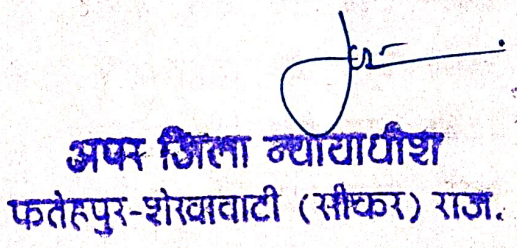 अपर जिला न्यायाधीश
फतेहपुर-शेखावाटी (सीकर) राज.